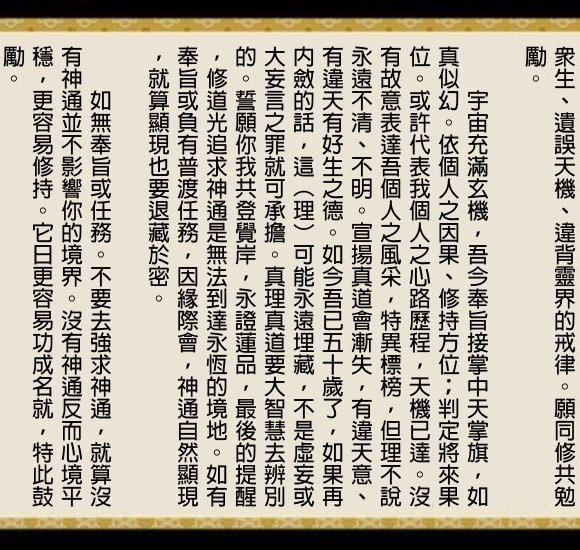 衆生、遺誤天機、違背靈界的戒律。願同修共勉
勵。
宇宙充滿玄機，吾今奉旨接掌中天掌旗，如
真似幻。依個人之因果、修持方位；判定將來果
位。或許代表我個人之心路歷程，天機已達。沒
有故意表達吾個人之風采，特異標榜，但理不說
永遠不清、不明。宣揚真道會漸失，有違天意、
有違天有好生之德。如今吾已五十歲了，如果再
内斂的話，這（理）可能永遠埋藏，不是虛妄或
大妄言之罪就可承擔。真理真道要大智慧去辨別
的。誓願你我共登覺岸，永證蓮品，最後的提醒
，修道光追求神通是無法到達永恆的境地。如有
奉旨或負有普渡任務，因緣際會，神通自然顯現
，就算顯現也要退藏於密。
如無奉旨或任務。不要去強求神通，就算沒
有神通並不影響你的境界。沒有神通反而心境平
穩，更容易修持。它日更容易功成名就，特此鼓
勵。